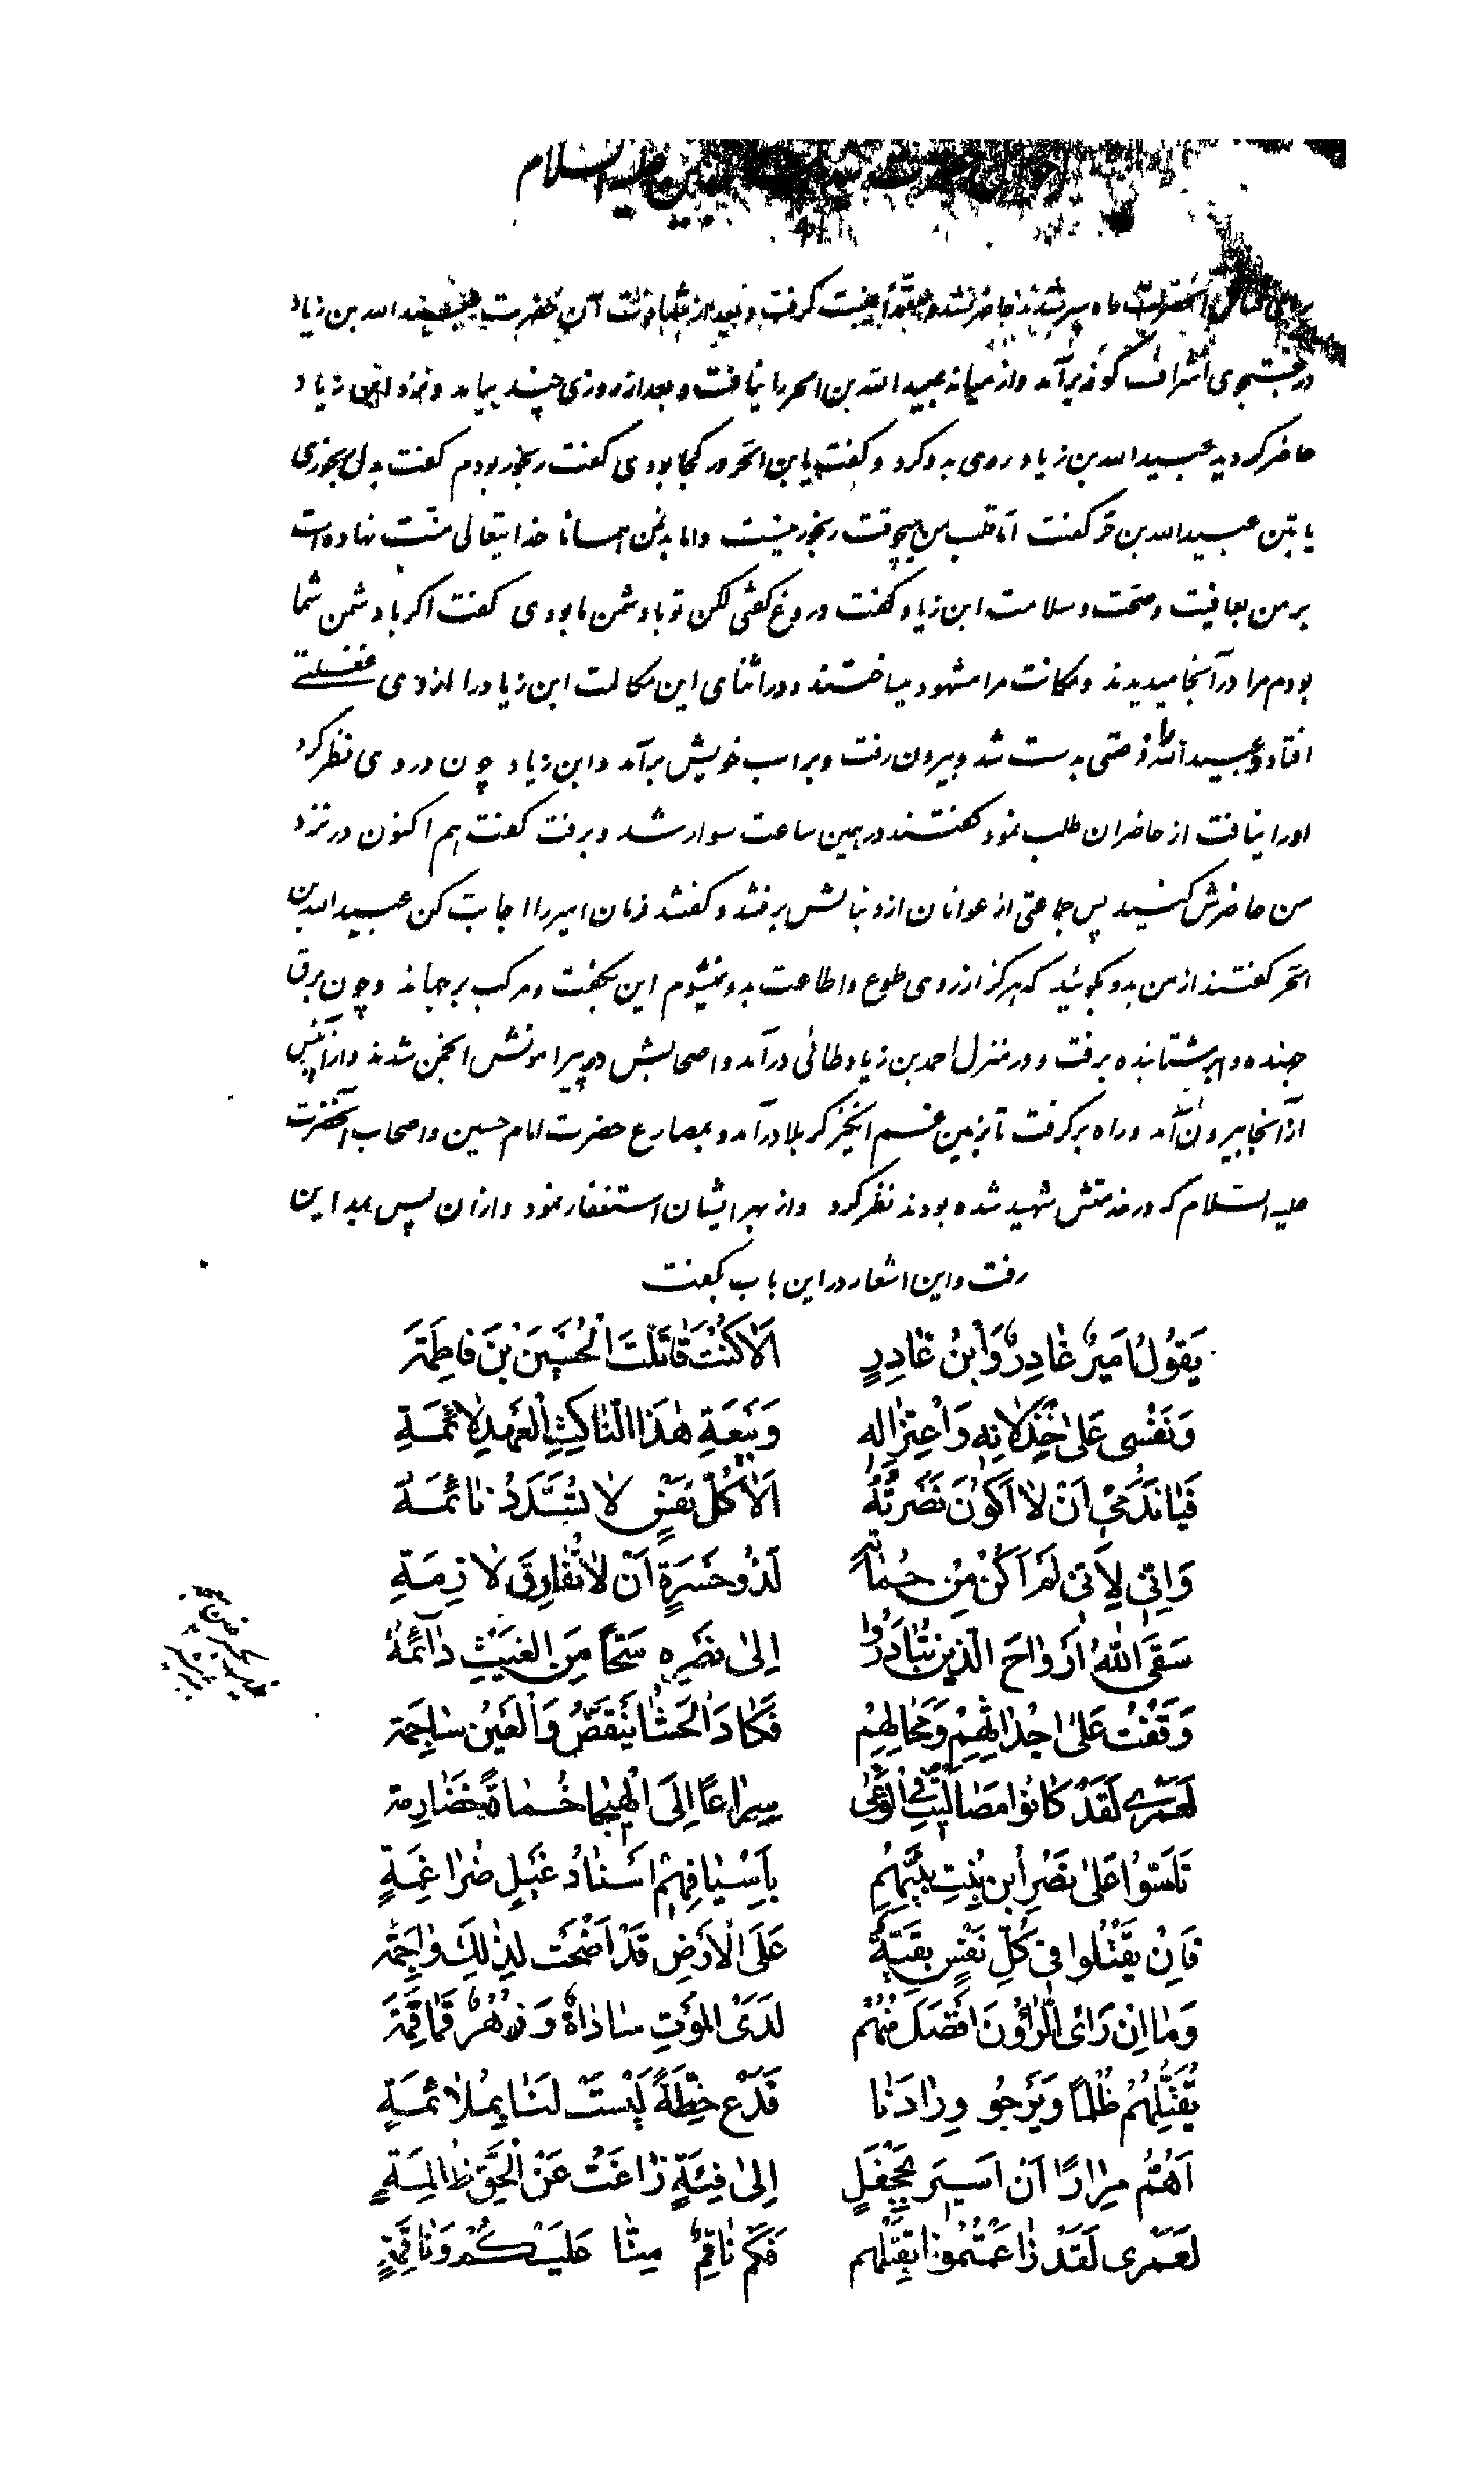 علیه السلام
در جستجوی اشراف کوفه برآمد و از میانه عبیدالله بن الحر را نیافت و بعد از روزی چند بیامد و نزد ابن زیاد
حاضر گردید عبیدالله بن زیاد روی بدو کرد و گفت یا بن الحر در کجا بودی گفت رنجور بودم گفت بدل رنجوری
یا بتن عبیدالله بن حر گفت اما قلب من هیچوقت رنجور نیست و اما بدن همانا خدایتعالی منت نهاده است
بر من بعافیت و صحت و سلامت ابن زیاد گفت دروغ گفتی لکن تو با دشمن ما بودی گفت اگر با دشمن شما
بودم مرا در آنجا میدیدند و مکانت مرا مشهود میساختند و در اثنای این مکالمت ابن زیاد را از وی غفلتی
افتاد و عبیدالله را فرصتی بدست شد و بیرون رفت و بر اسب خویش برآمد و ابن زیاد چون در وی نظر کرد
او را نیافت از حاضران طلب نمود گفتند در همین ساعت سوار شد و برفت گفت هم اکنون در نزد
من حاضرش کنید پس جماعتی از عوانان از دنبالش برفتند و گفتند فرمان امیر را اجابت کن عبیدالله بن
الحر گفتند از من بدو بگوئید که هرگز از روی طوع و اطاعت بدو نمیشوم این بگفت و مرکب برجهاند و چون برق
جهنده و ابر شتابنده برفت و در منزل احمد بن زیاد طائی درآمد و اصحابش در پیرامونش انجمن شدند و از آن پس
از آنجا بیرون آمد و راه برگرفت تا بزمین غم انگیز کربلا درآمد و بمصارع حضرت امام حسین و اصحاب آنحضرت
علیه السلام که در خدمتش شهید شده بودند نظر کرد و از بهر ایشان استغفار نمود و از ان پس بمداین
رفت و این اشعار در این باب بگفت
یَقُولُ اَمیرٌ غادِرٌ وَابْنُ غادِرٍ اَلا کُنْتَ قاتَلْتَ الْحُسَیْنَ بْنَ فاطِمَةَ
وَنَفْسی عَلیٰ خِذْلانِهِ وَاعْتِزالِهِ وَبَیْعَةِ هٰذَا النّاکِثِ الْعَهْدِ لائِمَةٌ
فَیا نَدَمی اَنْ لا اَکُونَ نَصَرْتُهُ اَلا کُلُّ نَفْسٍ لا تُسَدَّدُ نائِمَةٌ
وَاِنّی لِاَنّی لَمْ اَکُنْ مِنْ حُماتِهِ لَذُو حَسْرَةٍ اَنْ لا تُفارِقَ لازِمَةٍ
سَقَی اللهُ اَرْواحَ الَّذینَ تَبادَرُوا اِلیٰ نَصْرِهِ سَحّاً مِنَ الْغَیْثِ دائِمَةً
وَقَفْتُ عَلیٰ اَجْداثِهِمْ وَمَحالِهِمْ فَکادَ الْحَشا یَنْقَضُّ وَالْعَیْنُ ساجِمَة
لَعَمْری لَقَدْ کانُوا مَصالیتَ فِی الْوَغیٰ سِراعاً اِلَی الْهَیْجا حُماةً خَضارِمَة
تَاَسَّوْا عَلیٰ نَصْرِ ابْنِ بِنْتِ نَبِیِّهِمْ بِاَسْیافِهِمْ آسادُ غیلٍ ضَراغِمَةٍ
فَاِنْ یُقْتَلُوا فی کُلِّ نَفْسٍ بَقِیَّةٌ عَلَی الْاَرْضِ قَدْ اَضْحَتْ لِذٰلِکَ واجِمَة
وَما اِنْ رَاَی الرّاؤُنَ اَفْضَلَ مِنْهُمْ لَدَی الْمَوْتِ ساداةً وَزُهْرٌ قَماقِمَةَ
یُقَتِّلُهُمْ ظُلْماً وَیَرْجُو وِدادَنا فَدَعْ خِطَّةً لَیْسَتْ لَنا بِمُلائِمَةٍ
اَهُمُّ مِراراً اَنْ اَسیرَ بِجَحْفَلٍ اِلیٰ فِئَةٍ زاغَتْ عَنِ الْحَقِّ ظالِمَةٍ
لَعَمْری لَقَدْ زاغَمْتُمُونا بِقَتْلِهِم فَکَمْ ناقِمٍ مِنّا عَلَیْکُمْ وَناقِمَةٍ